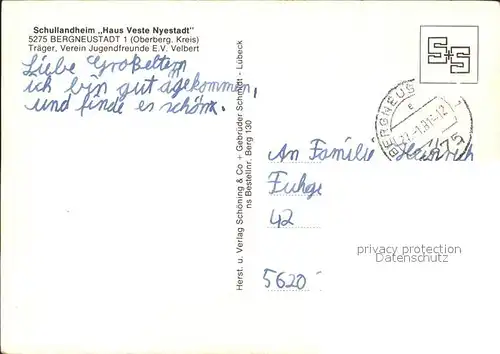 Schullandheim „Haus Veste Nyestadt"
5275 BERGNEUSTADT 1 (Oberberg. Kreis)
Träger, Verein Jugendfreunde E.V. Velbert
Liebe Großeltern
ich bin gut agekommen,
und finde es schön.
Herst. u. Verlag Schöning & Co + Gebrüder Schmidt - Lübeck
ns Bestellnr. Berg 130
S+S
BERGNEUS
An Familie Heinrich
Fuhge
42
5620
privacy protection
Datenschutz